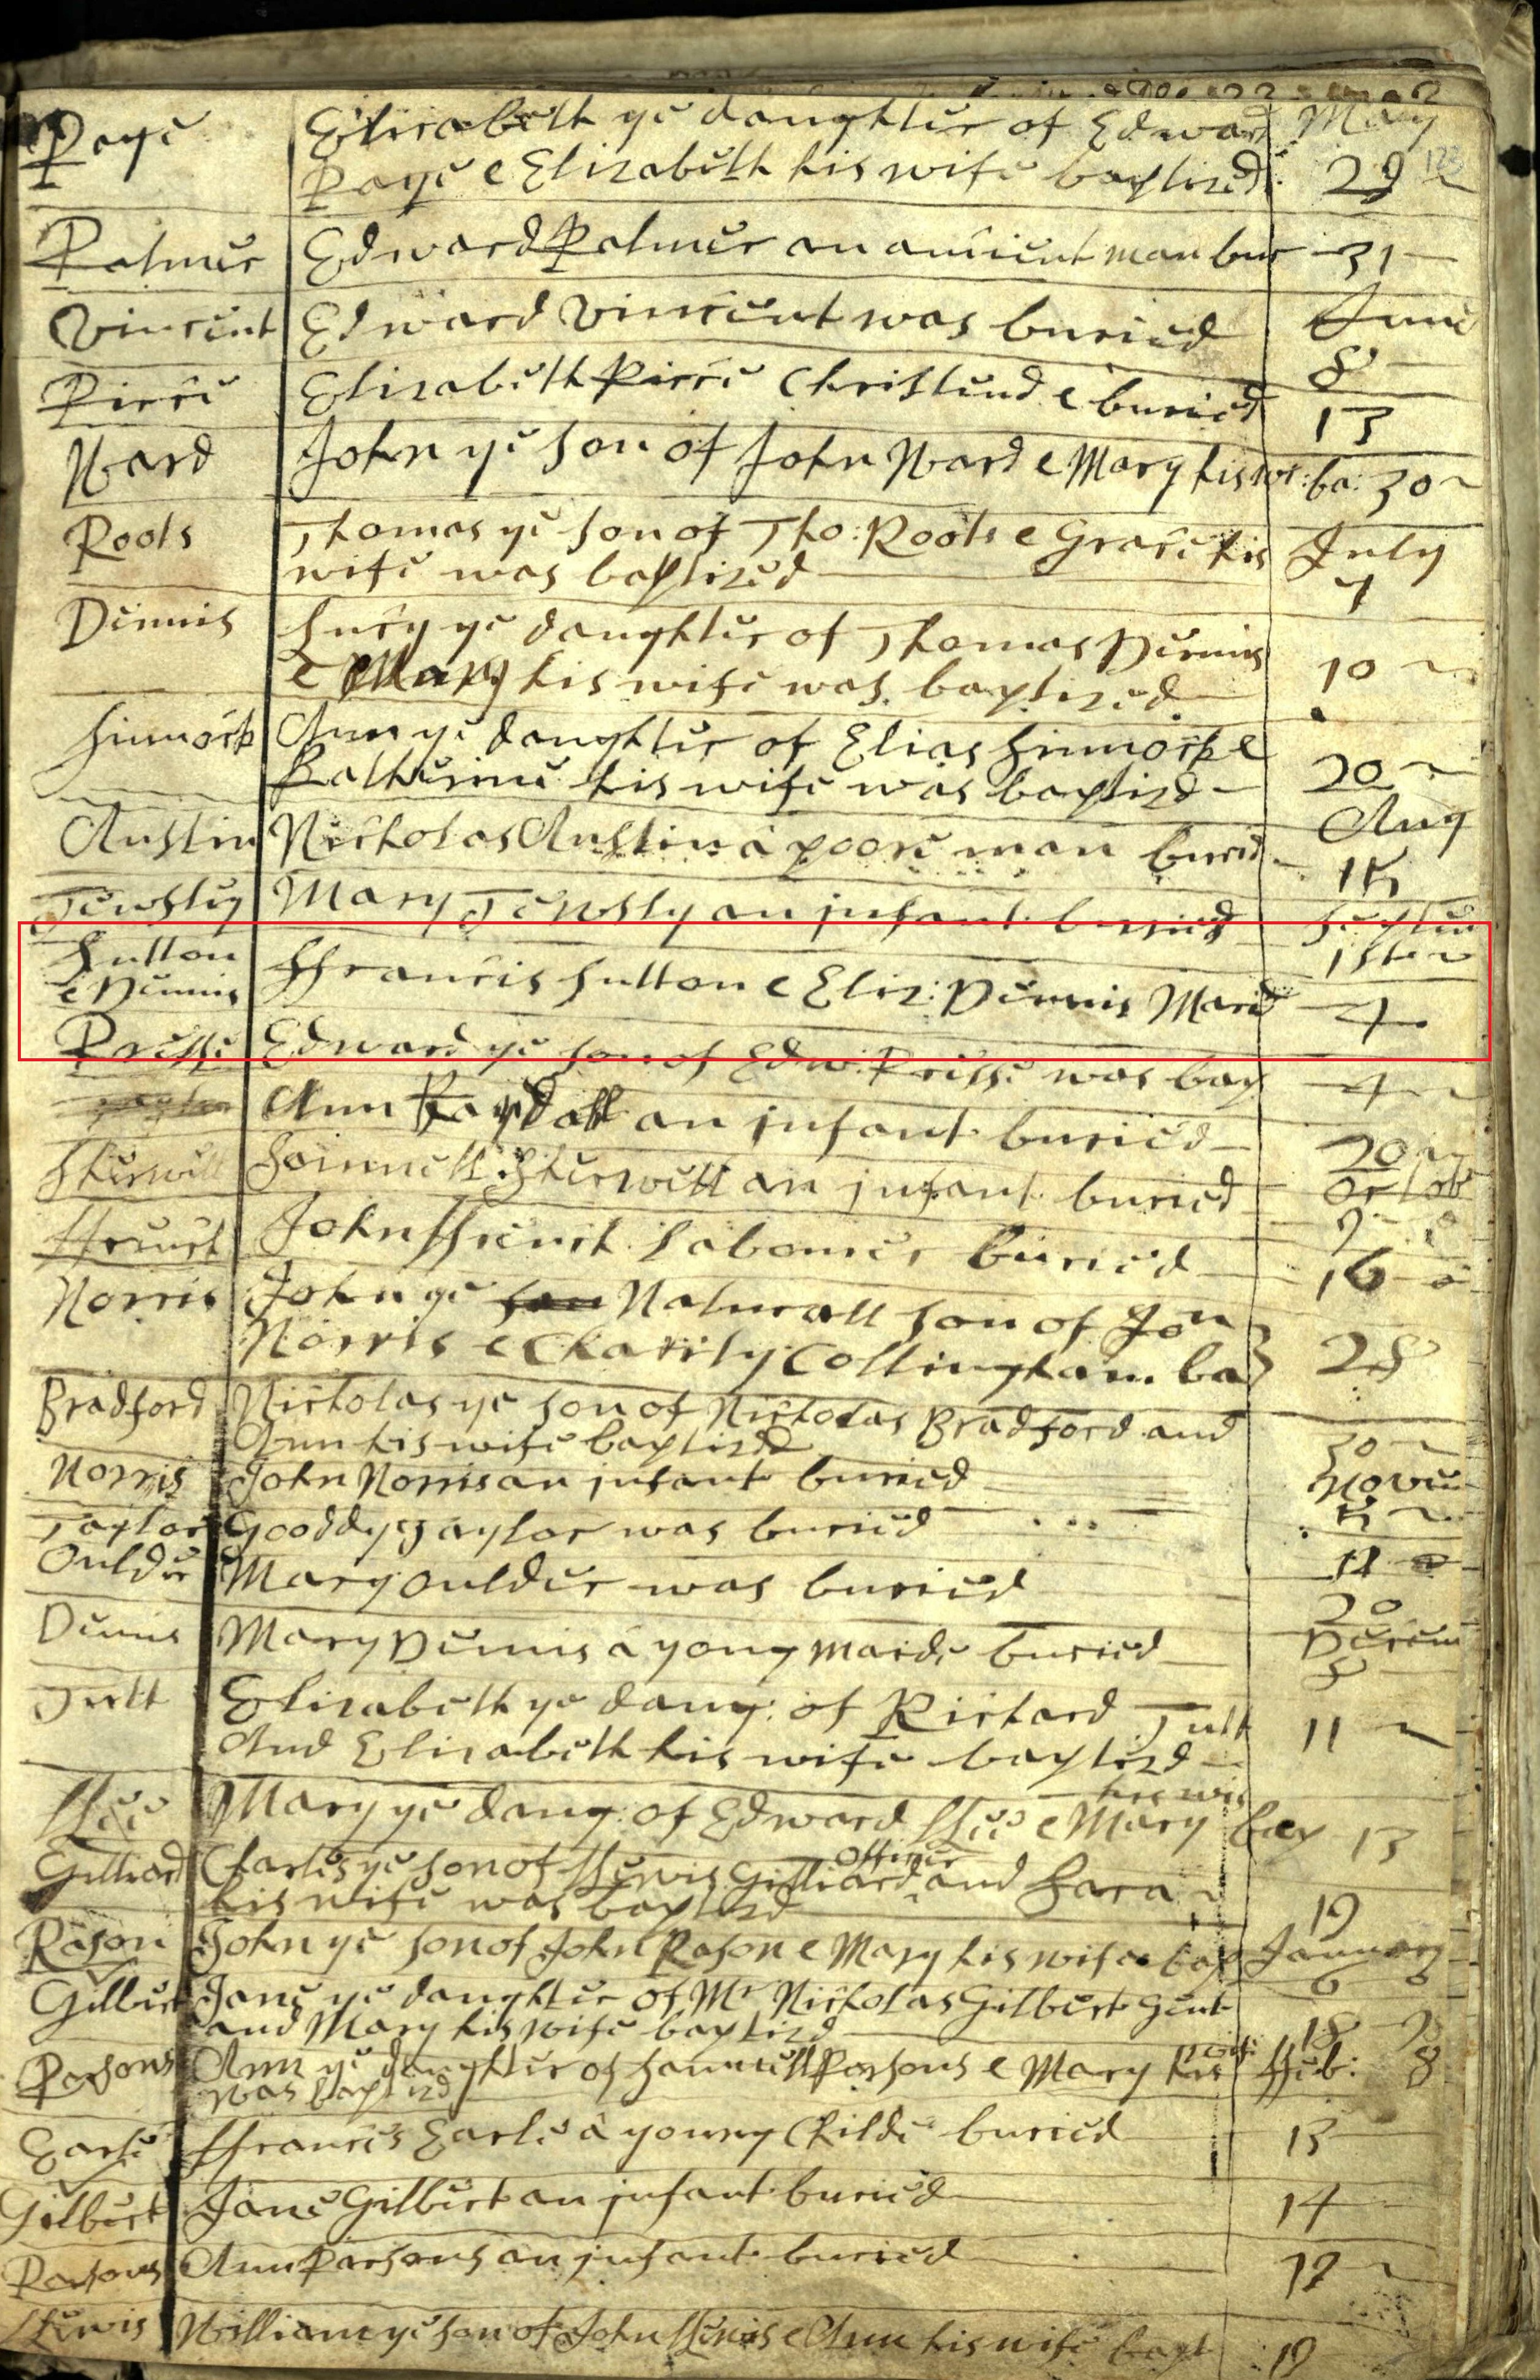 Page Elizabeth ye daughter of Edward May
Page e Elizabeth his wife baptized 29
123
Palmer Edward Palmer an ancient man bur 31
Vincent Edward Vincent was buried June
8
Pierce Elizabeth Pierce Christend e buried 13
Ward John ye son of John Ward e Mary his wi: ba: 30
Roots Thomas ye son of Tho: Roots e Grace his July
wife was baptized 7
Dennis Lucy ye daughter of Thomas Dennis
e Mary his wife was baptized 10
Simmock Ann ye daughter of Elias Simmock e
Katherine his wife was baptizd 20
Austin Nicholas Austin a poore man buried Aug
15
Tewsly Mary Tewsly an infant buried Septem
Sutton 1st
e Dennis ffrancis Sutton e Eliz: Dennis Marid 4
Presse Edward ye son of Edw: Presse was bap 4
Ann an infant buried 20
Sherwill an infant buried Octob
9
John labourer buried 16
Norris John ye son Naturall son of Jon
Norris e Charity Collingham ba 28
Bradford Nicholas ye son of Nicholas Bradford and
Ann his wife baptizd 30
Norris John Norris an infant buried Novem
5
Taylor Gooddy Taylor was buried 12
Oulder Mary Oulder was buried 20
Dennis Mary Dennis a yong Maide buried Decem
8
Tutt Elizabeth ye daug: of Richard Tutt 11
And Elizabeth his wife baptizd
his wif
Mary ye daug: of Edward e Mary bap 13
Officer
Gilliard Charles ye son of Gilliard and Sara
his wife was baptizd 19
Rason John ye son of John Rason e Mary his wife bap January
6
Gilbert Jane ye daughter of Mr Nicholas Gilbert Gent
and Mary his wife baptizd 18
wife
Parsons Ann ye daughter of Samuell Parsons e Mary his ffeb: 8
was baptizd
Earle ffrancis Earle a young Childe buried 13
Gilbert Jane Gilbert an infant buried 14
Parsons Ann Parsons an infant buried 17
William ye son of John e Ann his wife bapt 19